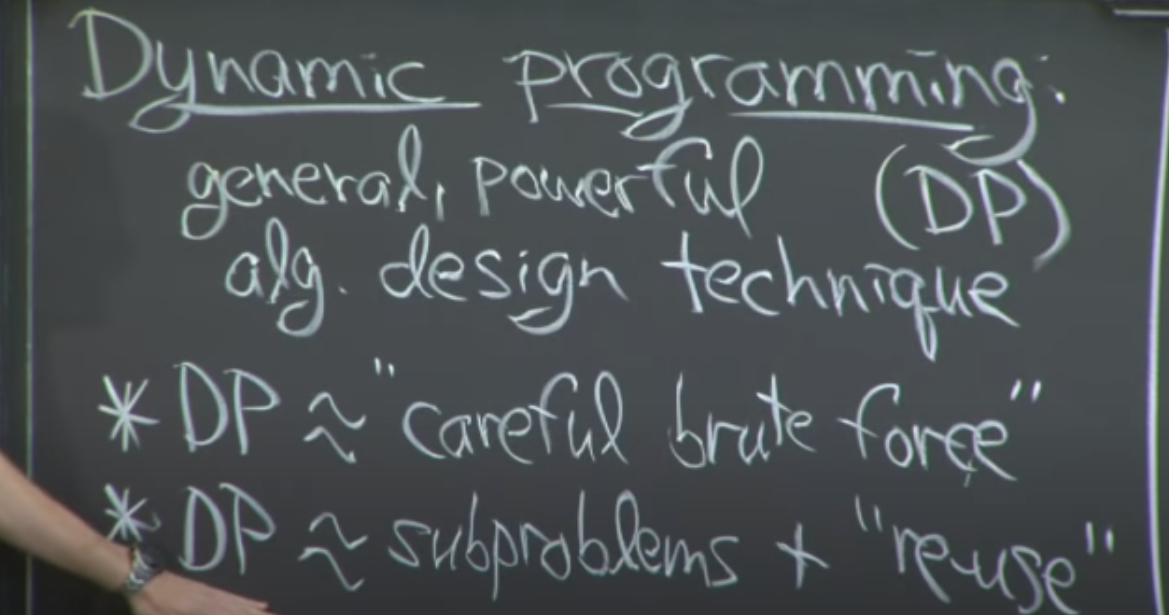 Dynamic programming:
general, powerful (DP)
alg. design technique
* DP ≈ "careful brute force"
* DP ≈ subproblems + "re-use"